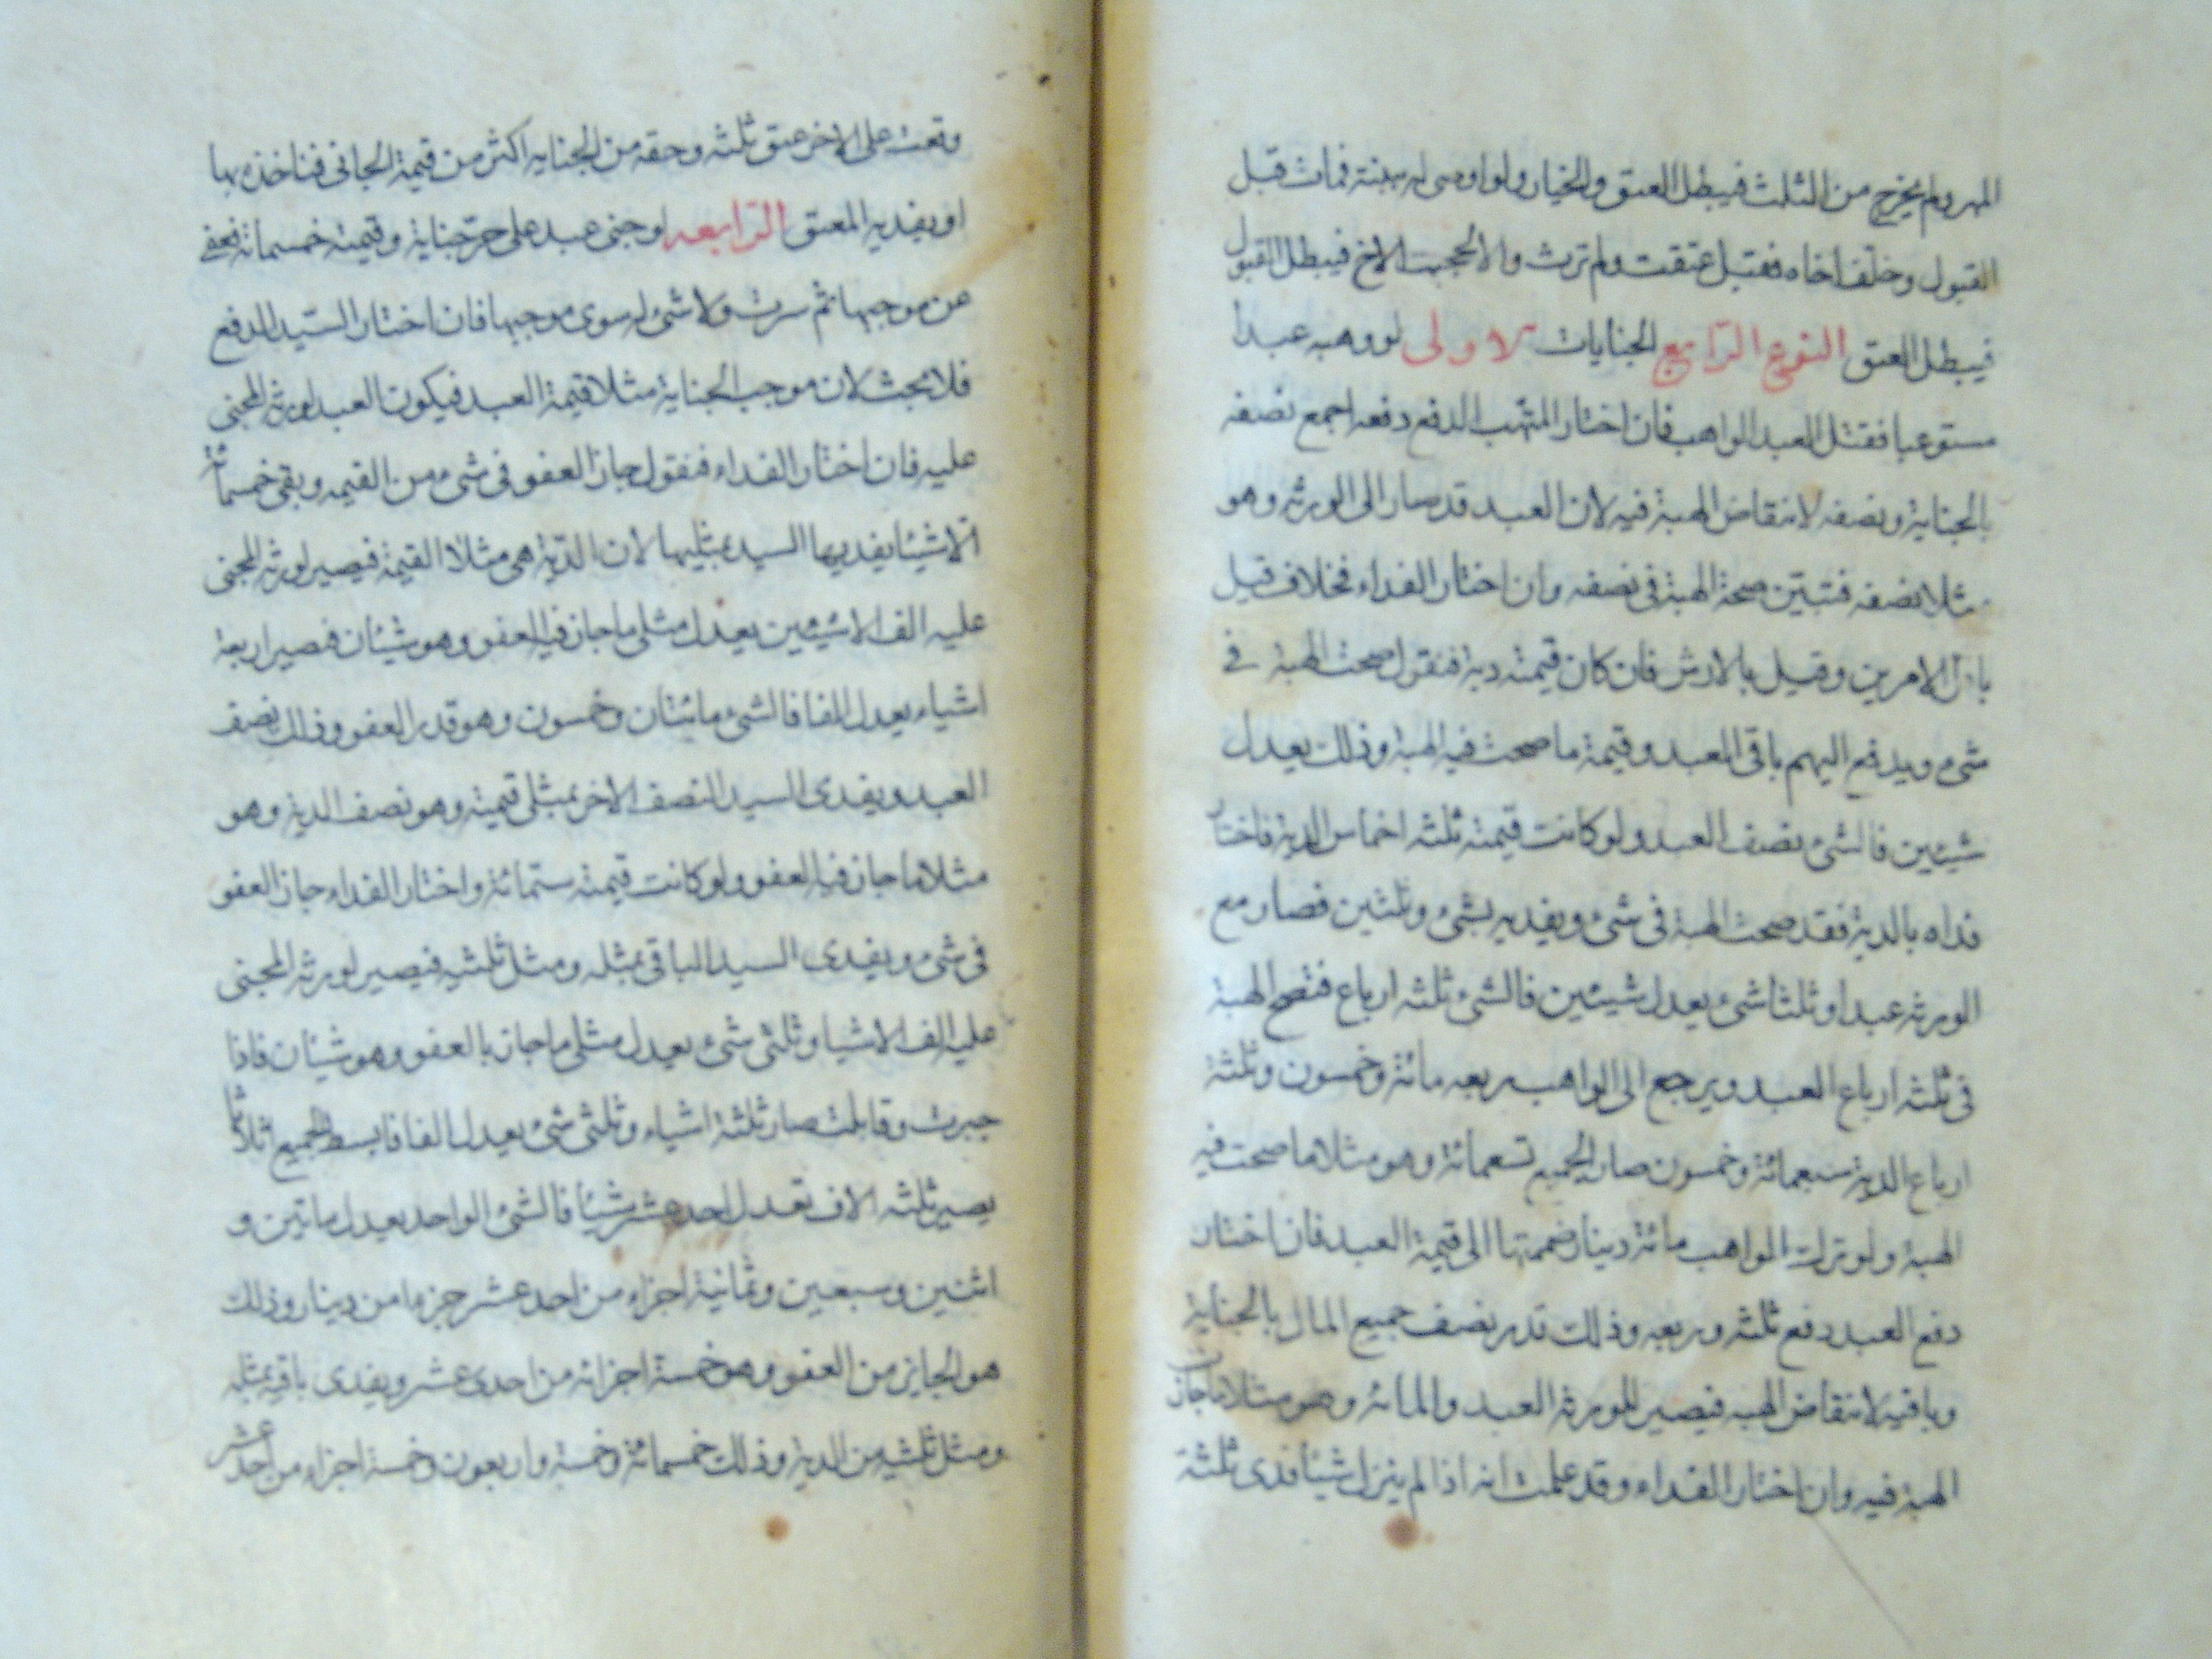 المهر ولم يخرج من الثلث فيبطل العتق والخيار ولو اوصى له ببنته فمات قبل
القبول وخلف اخاه فقبل عتقت ولم ترث والا لحجبت الاخ فيبطل القبول
فيبطل العتق النوع الرابع الجنايات الاولى لو وهبه عبدا
مستوعبا فقتل العبد الواهب فان اختار المتهب الدفع دفعه اجمع نصفه
بالجناية ونصفه لانتقاض الهبة فيه لان العبد قد صار الى الورثه وهو
مثلا نصفه فتبين صحة الهبة فى نصفه وان اختار الفداء فخلاف قيل
باقل الامرين وقيل بالارش فان كان قيمته دية فنقول صحت الهبة فى
شىء ويدفع اليهم باقى العبد وقيمة ما صحت فيه الهبة وذلك يعدل
شيئين فالشئ نصف العبد ولو كانت قيمته ثلثه اخماس الدية فاختار
فداه بالدية فقد صحت الهبة فى شئ ويفديه بشئ وثلثين فصار مع
الورثه عبدا وثلثا شئ يعدل شيئين فالشئ ثلثه ارباع فتصح الهبة
فى ثلثه ارباع العبد ويرجع الى الواهب ربعه مائة وخمسون وثلثة
ارباع الدية سبعمائة وخمسون صار الجميع تسعمائة وهو مثلا ما صحت فيه
الهبة ولو ترك الواهب مائة دينار ضممتها الى قيمة العبد فان اختار
دفع العبد دفع ثلثه وربعه وذلك قدر نصف جميع المال بالجناية
وباقيه لانتقاض الهبه فيصير للورثه العبد والمائه وهو مثلا ما جاز
الهبة فيه وان اختار الفداء وقد علمت انه اذا لم يترك شيئا فدى ثلثة
وقعت على الاخر عتق ثلثه وحقه من الجنايه اكثر من قيمة الجانى فناخذه بها
او يفديه المعتق الرابعه لو جنى عبد على حر جناية وقيمته خمسمائة فعفى
عن موجبها ثم سرت ولا شئ له سوى موجبها فان اختار السيد الدفع
فلا بحث لان موجب الجناية مثلا قيمة العبد فيكون العبد لورثه المجنى
عليه فان اختار الفداء فنقول جاز العفو فى شىء من القيمه وبقى خمسمائة
الا شيئا يفديها السيد بمثليها لان الدية هى مثلا القيمة فيصير لورثه المجنى
عليه الف الا شيئين يعدل مثلى ما جاز فيه العفو وهو شيئان فصير اربعة
اشياء يعدل الفا فالشئ مائتان وخمسون وهو قدر العفو وذلك نصف
العبد ويفدى السيد النصف الاخر بمثلى قيمته وهو نصف الدية وهو
مثلا ما جاز فيه العفو ولو كانت قيمته ستمائة واختار الفداء جاز العفو
فى شئ ويفدى السيد الباقى بمثله ومثل ثلثيه فيصير لورثه المجنى
عليه الف الا شيا وثلثى شئ يعدل مثلى ما جاز بالعفو وهو شيئان فاذا
جبرت وقابلت صار ثلثة اشياء وثلثى شئ يعدل الفا فابسط الجميع اثلاثا
يصير ثلثه الاف تعدل احد عشر شيئا فالشئ الواحد يعدل مايتين و
اثنين وسبعين وثمانية اجزاء من احد عشر جزءا من دينار وذلك
هو الجايز من العفو وهو خمسة اجزائه من احدى عشر ويفدى باقيه بمثله
ومثل ثلثيه من الدية وذلك خمسمائة وخمسة واربعون وخمسة اجزاء من احد عشر